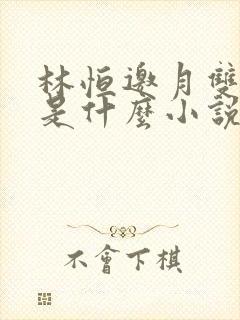 林恒邀月雙
是什麼小說
不會下棋